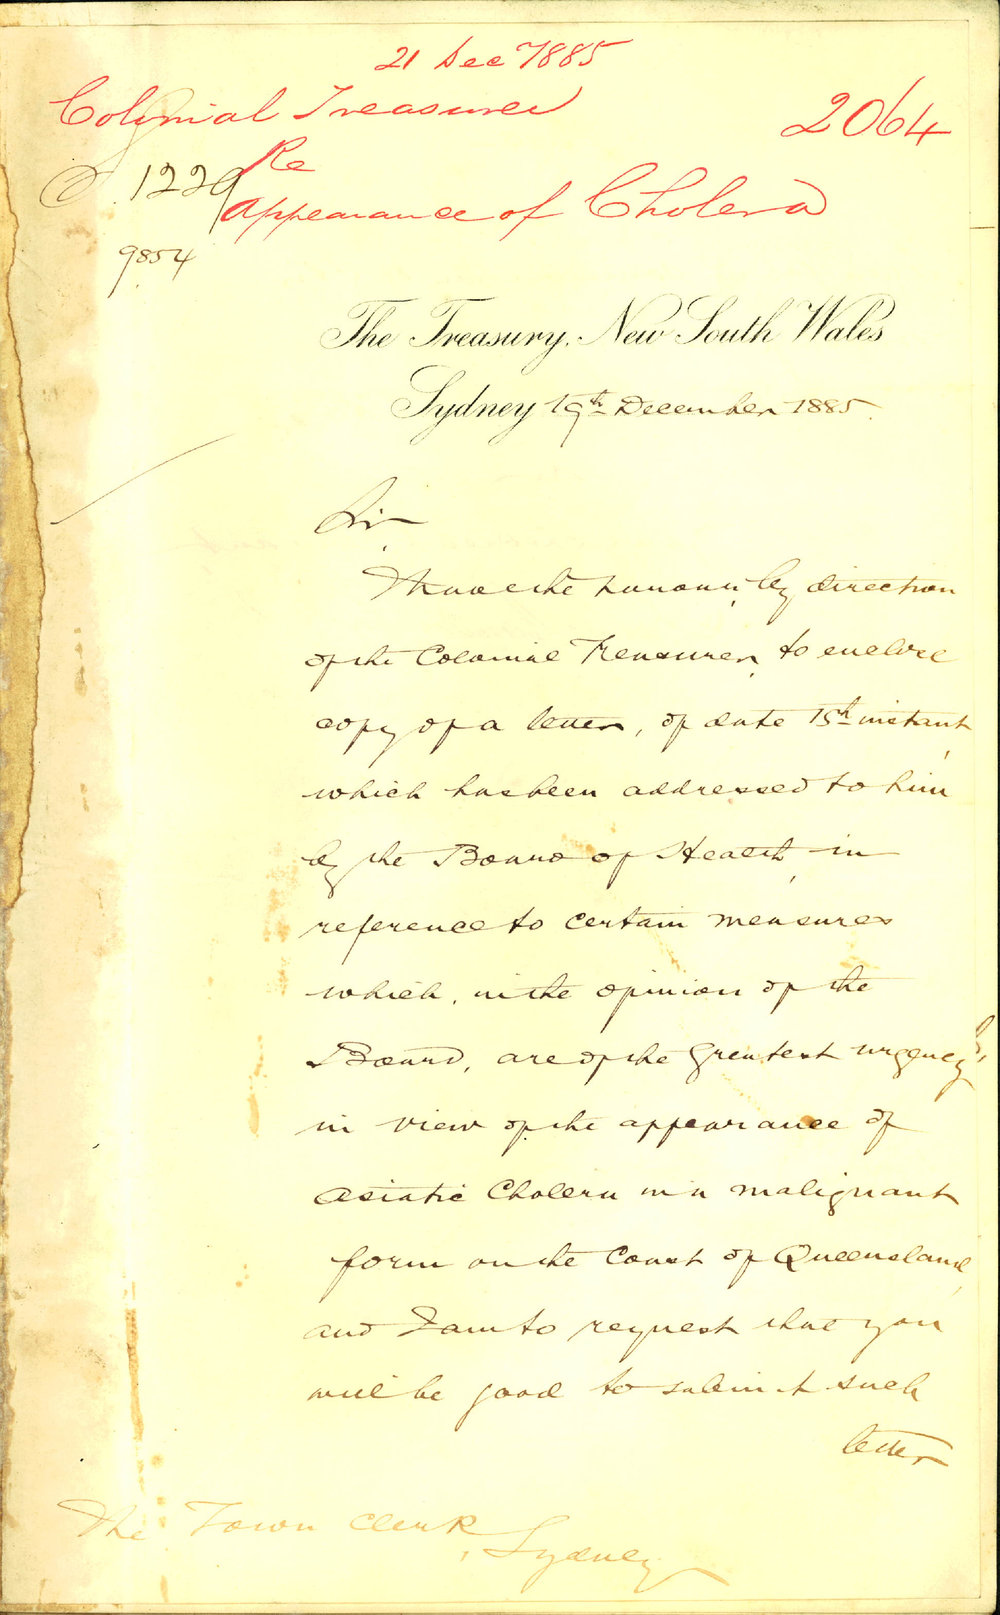 21 Dec 1885
Colonial Treasurer
2064
Re
1229
Appearance of Cholera
9854
The Treasury, New South Wales
Sydney 19th December 1885.
Sir
I have the honour, by direction
of the Colonial Treasurer, to enclose
copy of a letter, of date 15th instant,
which has been addressed to him
by the Board of Health, in
reference to certain measures
which, in the opinion of the
Board, are of the greatest urgency,
in view of the appearance of
Asiatic Cholera in a malignant
form on the Coast of Queensland,
and I am to request that you
will be good to submit such
letter
The Town Clerk,
Sydney